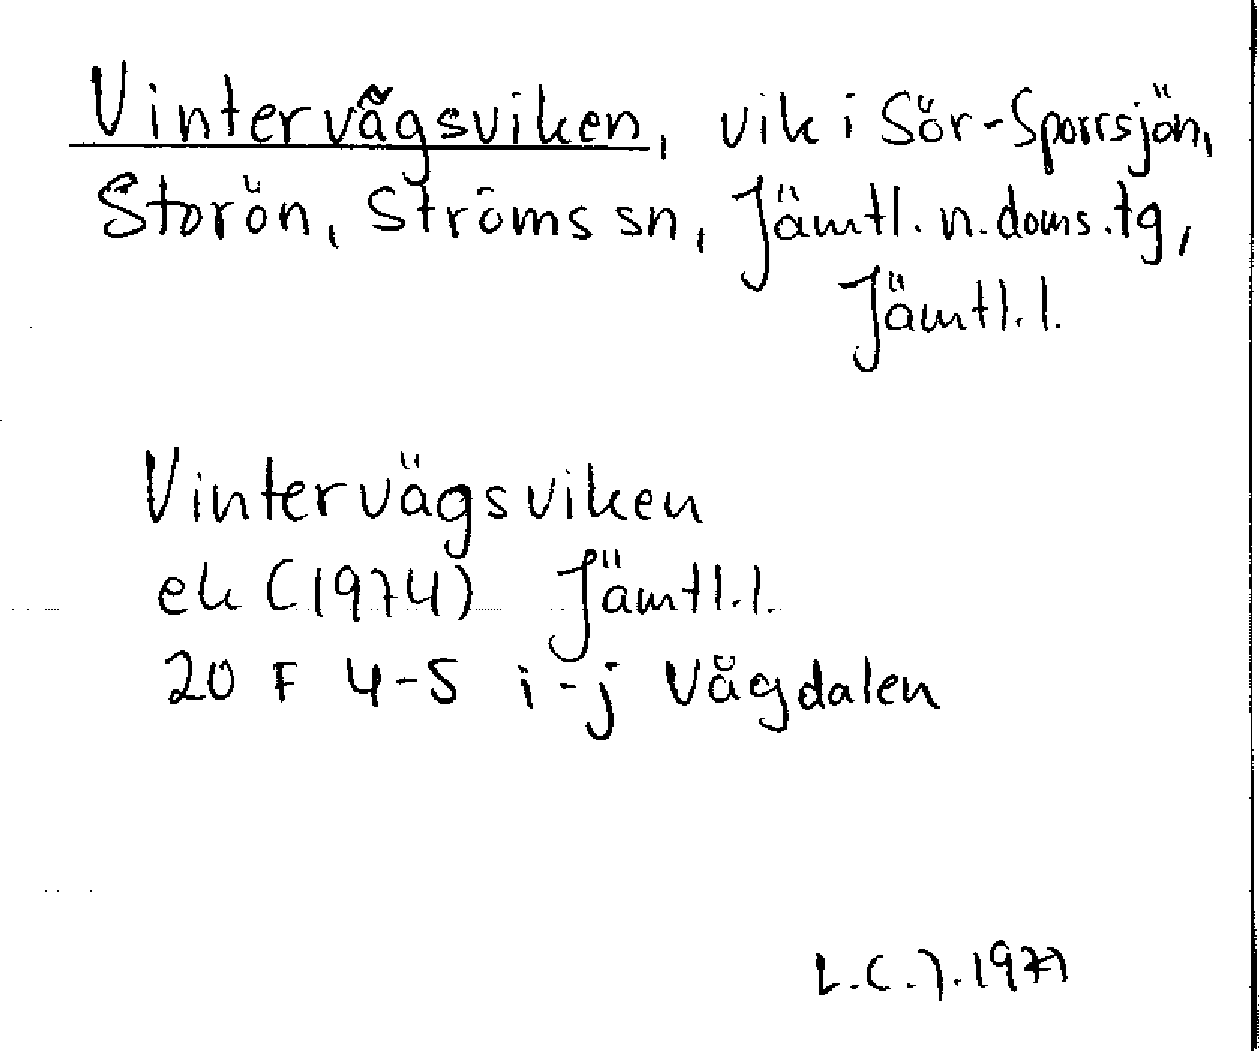 Vintervägsviken, vik i Sör-Sporrsjön,
Storön, Ströms sn, Jämtl. n. doms. tg,
Jämtl. l.
Vintervägsviken
ek (1974) Jämtl. l.
20 F 4-5 i-j Vågdalen
L.C.J. 1977